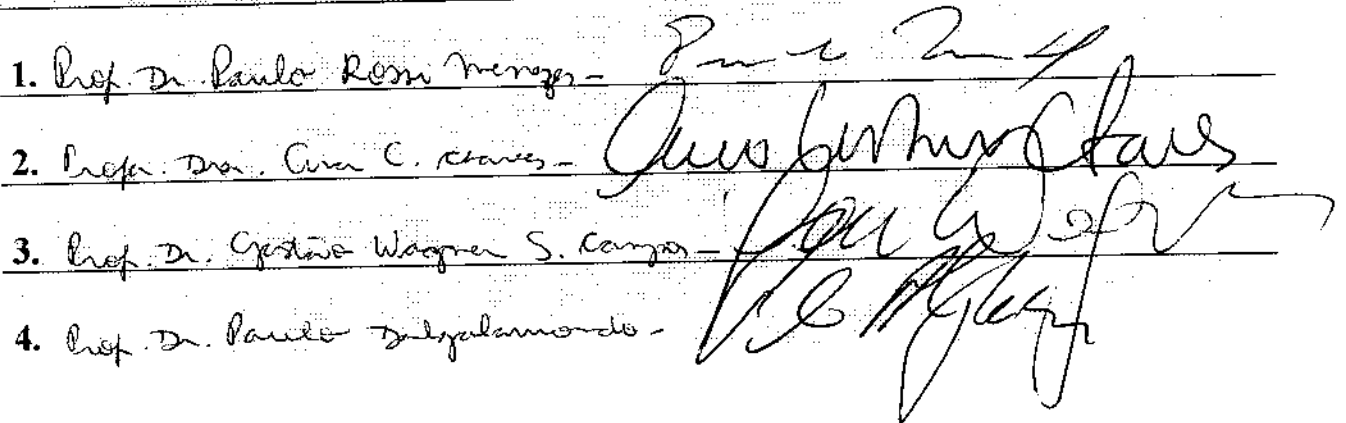 1. Prof. Dr. Paulo Rossi Menezes -
2. Profa. Dra. Ana C. Chaves -
3. Prof. Dr. Gastão Wagner S. Campos -
4. Prof. Dr. Paulo Dalgalarrondo -